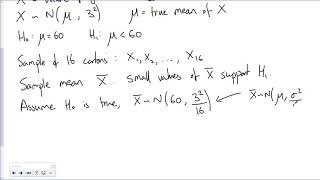 X ~ N(μ, 3²) μ = true mean of X
H₀: μ = 60 H₁: μ < 60
Sample of 16 cartons : X₁, X₂, ..., X₁₆
Sample mean X̄ ... small values of X̄ support H₁.
Assume H₀ is true, X̄ ~ N(60, 3²/16) ← X̄ ~ N(μ, σ²/